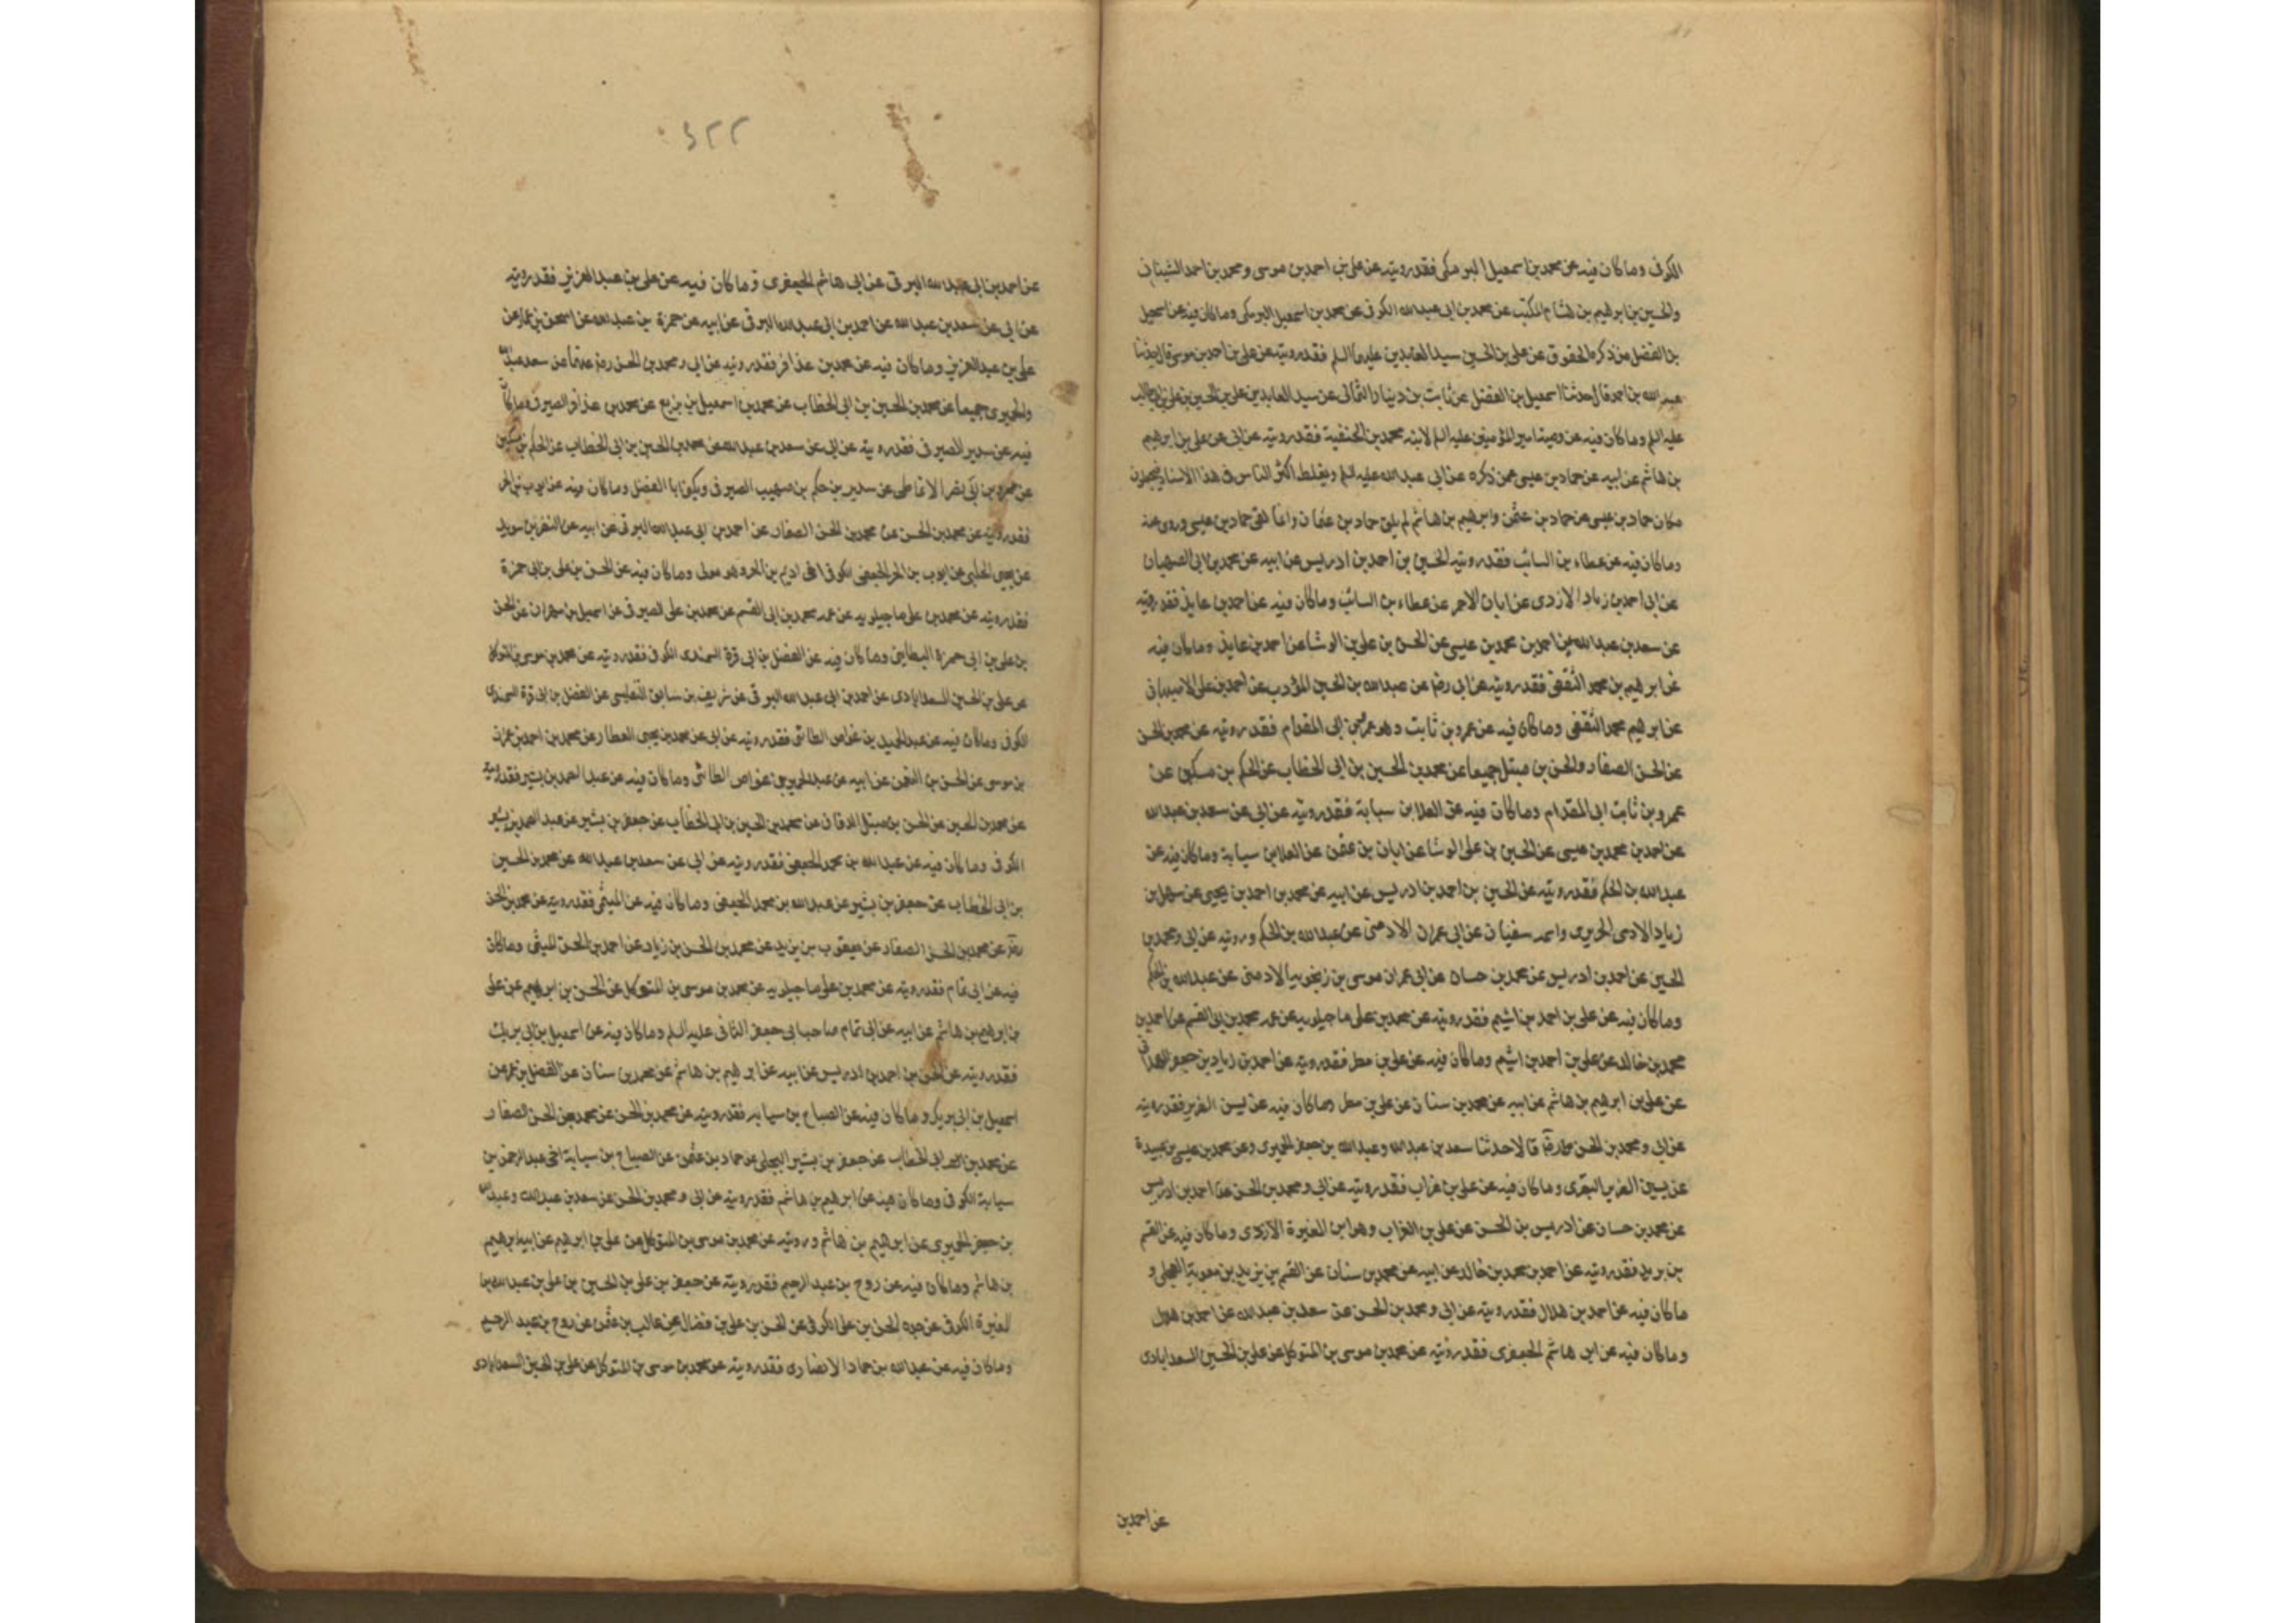 الكوفى وما كان فيه عن محمد بن اسمعيل البرمكى فقد رويته عن على بن احمد بن موسى ومحمد بن احمد الشيبانى
والحسين بن ابرهيم بن هشام المكتب عن محمد بن ابى عبدالله الكوفى عن محمد بن اسمعيل البرمكى وما كان فيه عن اسمعيل
بن الفضل من ذكره الحقوق عن على بن الحسين سيد العابدين عليهما السلم فقد رويته عن على بن احمد بن موسى قال حدثنا
عبدالله بن احمد قال حدثنا اسمعيل بن الفضل عن ثابت بن دينار الثمالى عن سيد العابدين على بن الحسين بن على بن ابيطالب
عليه السلم وما كان فيه عن وصية امير المؤمنين عليه السلم لابنه محمد بن الحنفية فقد رويته عن ابى عن على بن ابرهيم
بن هاشم عن ابيه عن حماد بن عيسى عمن ذكره عن ابى عبدالله عليه السلم ويغلط اكثر الناس فى هذا الاسناد فيجعلون
مكان حماد بن عيسى حماد بن عثمن وابرهيم بن هاشم لم يلق حماد بن عثمان وانما لقى حماد بن عيسى وروى عنه
وما كان فيه عن عطاء بن السائب فقد رويته الحسين بن احمد بن ادريس عن ابيه عن محمد بن ابى الصهبان
عن ابى احمد بن زياد الازدى عن ابان الاحمر عن عطاء بن السائب وما كان فيه عن احمد بن عايذ فقد رويته
عن سعد بن عبدالله عن احمد بن محمد بن عيسى عن الحسن بن على بن الوشا عن احمد بن عايذ وما كان فيه
عن ابرهيم بن محمد الثقفى فقد رويته عن ابى رضه عن عبدالله بن الحسين المؤدب عن احمد بن على الاصبهانى
عن ابرهيم محمد الثقفى وما كان فيه عن عمرو بن ثابت وهو عمرو بن ابى المقدام فقد رويته عن محمد بن الحسن
عن الحسن الصفار والحسن بن متيل جميعا عن محمد بن الحسين بن ابى الخطاب عن الحكم بن مسكين عن
عمرو بن ثابت ابى المقدام وما كان فيه عن العلا بن سيابة فقد رويته عن ابى عن سعد بن عبدالله
عن احمد بن محمد بن عيسى عن الحسين بن على الوشا عن ابان بن عثمن عن العلا بن سيابة وما كان فيه عن
عبدالله بن الحكم فقد رويته عن الحسين بن احمد بن ادريس عن ابيه عن محمد بن احمد بن يحيى عن سهل بن
زياد الادمى الحريرى واسمه سفيان عن ابى عمران الارمنى عن عبدالله بن الحكم ورويته عن ابى ومحمد بن
الحسين عن احمد بن ادريس عن محمد بن حسان عن ابى عمران موسى بن زنجويه الارمنى عن عبدالله بن الحكم
وما كان فيه عن على بن احمد بن اشيم فقد رويته عن محمد بن على ماجيلويه عن عمه محمد بن ابى القسم عن احمد بن
محمد بن خالد عن على بن احمد بن اشيم وما كان فيه عن على بن مطر فقد رويته عن احمد بن زياد بن جعفر الهمدانى
عن على بن ابرهيم بن هاشم عن ابيه عن محمد بن سنان عن على بن مطر وما كان فيه عن يسين الضرير فقد رويته
عن ابى ومحمد بن الحسن قالا حدثنا سعد بن عبدالله وعبدالله بن جعفر الحميرى وعن محمد بن عيسى بن عبيدة
عن يسين الضرير البصرى وما كان فيه عن على بن غراب فقد رويته عن ابى ومحمد بن الحسن عن احمد بن ادريس
عن محمد بن حسان عن ادريس بن الحسن عن على بن الغراب وهو ابن المغيرة الازدى وما كان فيه عن القسم
بن بريد فقد رويته عن احمد بن محمد بن خالد عن ابيه عن محمد بن سنان عن القسم بن بريد بن معوية العجلى و
ما كان فيه عن احمد بن هلال فقد رويته عن ابى ومحمد بن الحسن عن سعد بن عبدالله عن احمد بن هلال
وما كان فيه عن ابى هاشم الجعفرى فقد رويته عن محمد بن موسى بن المتوكل عن على بن الحسين السعدابادى
عن احمد بن
٣٢٢
عن احمد بن ابى عبدالله البرقى عن ابى هاشم الجعفرى وما كان فيه عن على بن عبد العزيز فقد رويته
عن ابى عن سعد بن عبدالله عن احمد بن ابى عبدالله البرقى عن ابيه عن حمزة بن عبدالله عن اسحق بن عمار عن
على بن عبد العزيز وما كان فيه عن محمد بن عذافر فقد رويته عن ابى ومحمد بن الحسن رضى عنهما عن سعد عبدالله
والحميرى جميعا عن محمد بن الحسين بن ابى الخطاب عن محمد بن اسمعيل بن بزيع عن محمد بن عذافر الصيرفى وما كان
فيه عن سدير الصيرفى فقد رويته عن ابى عن سعد بن عبدالله عن محمد بن الحسين بن ابى الخطاب عن الحكم بن مسكين
عن عمرو بن ابى نصر الانماطى عن سدير بن حكيم بن صهيب الصيرفى ويكنى ابا الفضل وما كان فيه عن ايوب بن الحر
فقد رويته عن محمد بن الحسن عن محمد بن الحسن الصفار عن احمد بن ابى عبدالله البرقى عن ابيه عن النضر بن سويد
عن يحيى الحلبى عن ايوب بن الحر الجعفى الكوفى اخى اديم بن الحر وهو مولى وما كان فيه عن الحسن بن على بن ابى حمزة
فقد رويته عن محمد بن على ماجيلويه عن عمه محمد بن ابى القسم عن محمد بن على الصيرفى عن اسمعيل بن مهران عن الحسن
بن على بن ابى حمزة البطاينى وما كان فيه عن الفضل بن ابى قرة السمندى الكوفى فقد رويته عن محمد بن موسى بن المتوكل
عن على بن الحسين السعدابادى عن احمد بن ابى عبدالله البرقى عن شريف بن سابق التفليسى عن الفضل بن ابى قرة السمندى
الكوفى وما كان فيه عن عبد الحميد بن عواض الطائى فقد رويته عن ابى عن محمد بن يحيى العطار عن محمد بن احمد عن عمران
بن موسى عن الحسن بن النعمن عن ابيه عن عبد الحميد بن عواض الطائى وما كان فيه عن عبد الصمد بن بشير فقد رويته
عن محمد بن الحسين عن الحسن بن متيل الدقاق عن محمد بن الحسين بن ابى الخطاب عن جعفر بن بشير عن عبد الصمد بن بشير
الكوفى وما كان فيه عن عبدالله بن محمد الجعفى فقد رويته عن ابى عن سعد بن عبدالله عن محمد بن الحسين
بن ابى الخطاب عن جعفر بن بشير عن عبدالله بن محمد الجعفى وما كان فيه عن الميثمى فقد رويته عن محمد بن الحسن
عن محمد بن الحسن الصفار عن يعقوب بن يزيد عن محمد بن الحسن بن زياد عن احمد بن الحسن الميثمى وما كان
فيه عن ابى تمام فقد رويته عن محمد بن على ماجيلويه عن محمد بن موسى بن المتوكل عن الحسن بن ابرهيم عن على
بن ابرهيم بن هاشم عن ابيه عن ابى تمام صاحب ابى جعفر الثانى عليه السلم وما كان فيه عن اسمعيل بن ابى بريك
فقد رويته عن الحسن بن احمد بن ادريس عن ابيه عن ابرهيم بن هاشم عن محمد بن سنان عن المفضل بن عمر عن
اسمعيل بن ابى بريك وما كان فيه عن الصباح بن سيابه فقد رويته عن محمد بن الحسن عن محمد بن الحسن الصفار
عن محمد بن ابى الخطاب عن جعفر بن بشير البجلى عن حماد بن عثمن عن الصباح بن سيابة اخى عبد الرحمن بن
سيابة الكوفى وما كان فيه عن ابرهيم بن هاشم فقد رويته عن ابى ومحمد بن الحسن عن سعد بن عبدالله وعبدالله
بن جعفر الحميرى عن ابرهيم بن هاشم ورويته عن محمد بن موسى بن المتوكل عن على بن ابرهيم عن ابيه ابرهيم
بن هاشم وما كان فيه عن روح بن عبد الرحيم فقد رويته عن جعفر بن على بن الحسين بن على بن عبدالله بن
المغيرة الكوفى عن جده الحسن بن على الكوفى عن الحسن بن على بن فضال عن غالب بن عثمن عن روح بن عبد الرحيم
وما كان فيه عن عبدالله بن حماد الانصارى فقد رويته عن محمد بن موسى بن المتوكل عن على بن الحسين السعدابادى